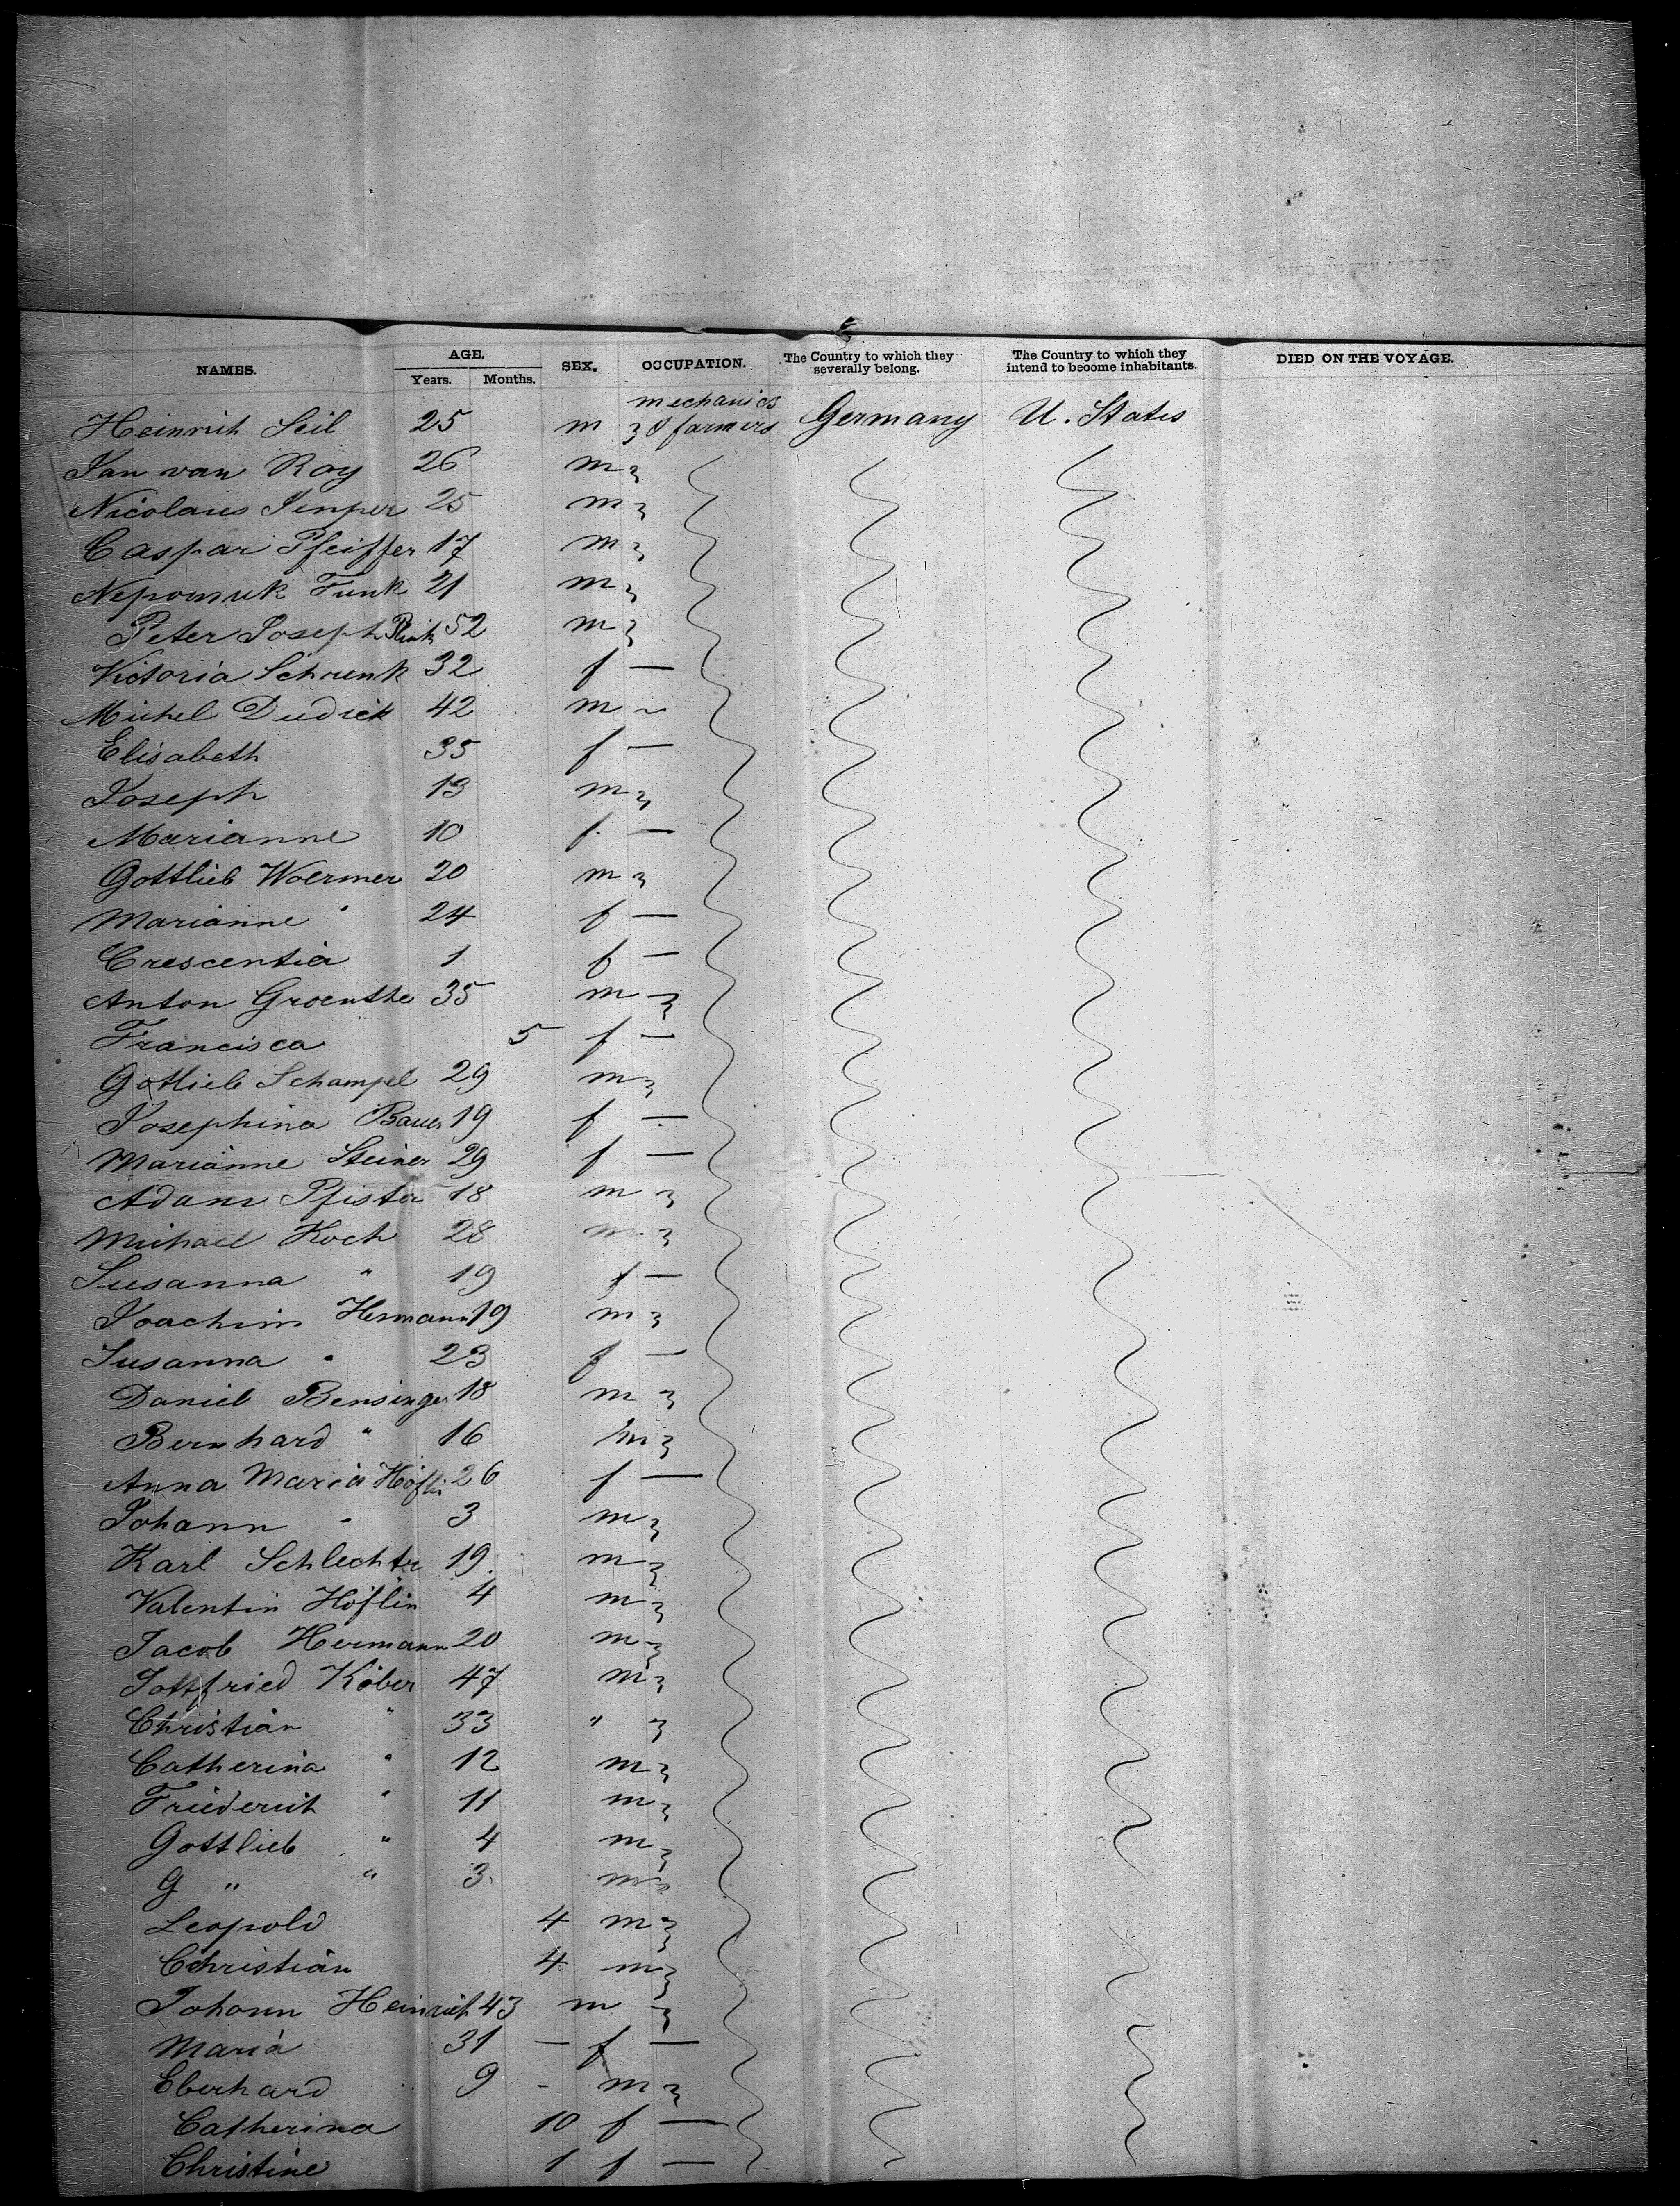 NAMES. AGE. Years. Months. SEX. OCCUPATION. The Country to which they severally belong. The Country to which they intend to become inhabitants. DIED ON THE VOYAGE.
mechanics
Heinrich Seil 25 m & farmers Germany U. States
Jan van Roy 26 m
Nicolaus 25 m
Caspar Pfeiffer 17 m
Nepomuk Funk 21 m
Peter Joseph 52 m
Victoria Schrenk 32 f —
Michel Dudick 42 m
Elisabeth 35 f —
Joseph 13 m
Marianne 10 f —
Gottlieb Woermer 20 m
Marianne " 24 f —
Crescentia 1 f —
Anton Groenthe 35 m
Francisca 5 f —
Gotlieb Schampel 29 m
Josephina Bauer 19 f —
Marianne Steiner 29 f —
Adam Pfister 18 m
Michael Koch 28 m
Susanna " 19 f —
Joachim Hermann 19 m
Susanna " 23 f —
Daniel Bensinger 18 m
Bernhard " 16 m
Anna Maria Höflin 26 f —
Johann " 3 m
Karl Schlechter 19 m
Valentin Höflin 4 m
Jacob Hermann 20 m
Gottfried Köber 47 m
Christian " 33 "
Catherina " 12 m
Friederich " 11 m
Gottlieb " 4 m
G " " 3 m
Leopold 4 m
Christian 4 m
Johann Heinrich 43 m
Maria 31 — f —
Eberhard 9 - m
Catherina 10 f —
Christine 1 f —